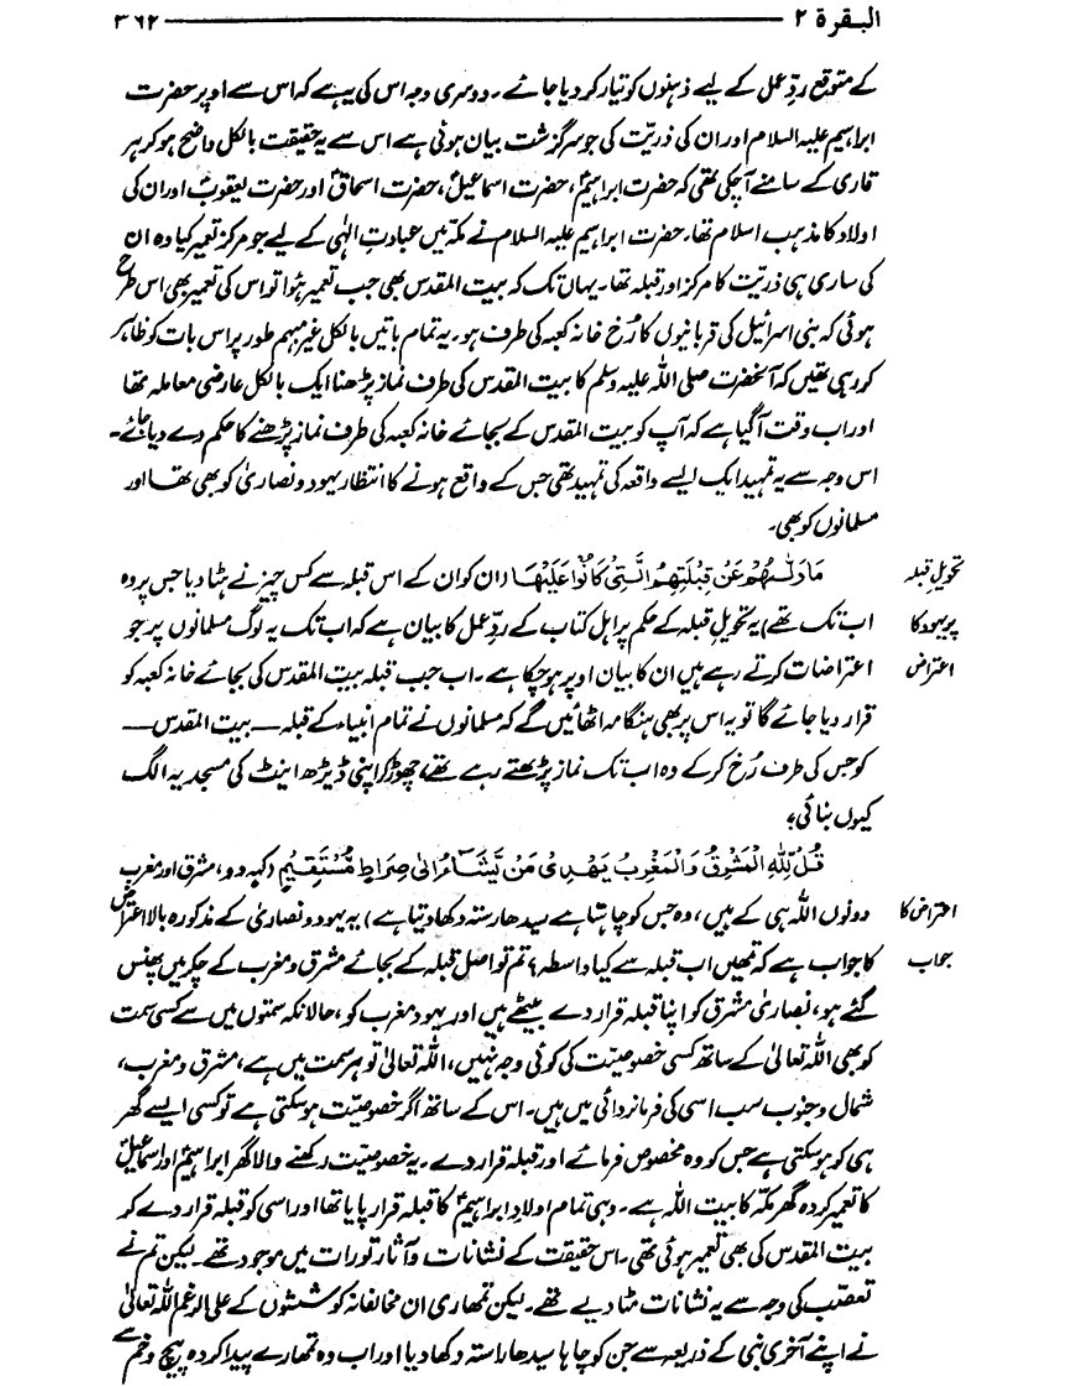 البقرة ۲ ——— ۳۶۲
کے متوقع ردِّ عمل کے لیے ذہنوں کو تیار کر دیا جائے۔ دوسری وجہ اس کی یہ ہے کہ اس سے اوپر حضرت
ابراہیم علیہ السلام اور ان کی ذریّت کی جو سرگزشت بیان ہوئی ہے اس سے یہ حقیقت بالکل واضح ہو کر ہر
قاری کے سامنے آچکی تھی کہ حضرت ابراہیمؑ، حضرت اسماعیلؑ، حضرت اسحاقؑ اور حضرت یعقوبؑ اور ان کی
اولاد کا مذہب اسلام تھا۔ حضرت ابراہیم علیہ السلام نے مکہّ میں عبادتِ الٰہی کے لیے جو مرکز تعمیر کیا وہ ان
کی ساری ہی ذریّت کا مرکز اور قبلہ تھا۔ یہاں تک کہ بیت المقدس بھی جب تعمیر ہُوا تو اس کی تعمیر بھی اس طرح
ہوئی کہ بنی اسرائیل کی قربانیوں کا رُخ خانہ کعبہ کی طرف ہو۔ یہ تمام باتیں بالکل غیر مبہم طور پر اس بات کو ظاہر
کر رہی تھیں کہ آنحضرت صلی اللہ علیہ وسلم کا بیت المقدس کی طرف نماز پڑھنا ایک بالکل عارضی معاملہ تھا
اور اب وقت آگیا ہے کہ آپ کو بیت المقدس کے بجائے خانہ کعبہ کی طرف نماز پڑھنے کا حکم دے دیا جائے۔
اس وجہ سے یہ تمہید ایک ایسے واقعہ کی تمہید تھی جس کے واقع ہونے کا انتظار یہود و نصاریٰ کو بھی تھا اور
مسلمانوں کو بھی۔
تحویلِ قبلہ
مَا وَلّٰىهُمْ عَنْ قِبْلَتِهِمُ الَّتِىْ كَانُوْا عَلَيْهَا (ان کو ان کے اس قبلہ سے کس چیز نے ہٹا دیا جس پر وہ
پر یہود کا
اب تک تھے) یہ تحویلِ قبلہ کے حکم پر اہل کتاب کے ردِّ عمل کا بیان ہے کہ اب تک یہ لوگ مسلمانوں پر جو
اعتراض
اعتراضات کرتے رہے ہیں ان کا بیان اوپر ہو چکا ہے۔ اب جب قبلہ بیت المقدس کی بجائے خانہ کعبہ کو
قرار دیا جائے گا تو یہ اس پر بھی ہنگامہ اٹھائیں گے کہ مسلمانوں نے تمام انبیاء کے قبلہ — بیت المقدس —
کو جس کی طرف رُخ کر کے وہ اب تک نماز پڑھتے رہے تھے، چھوڑ کر اپنی ڈیڑھ اینٹ کی مسجد یہ الگ
کیوں بنائی؟
قُلْ لِّلّٰهِ الْمَشْرِقُ وَالْمَغْرِبُ يَهْدِىْ مَنْ يَّشَآءُ اِلٰى صِرَاطٍ مُّسْتَقِيْمٍ (کہہ دو، مشرق اور مغرب
اعتراض کا
دونوں اللہ ہی کے ہیں، وہ جس کو چاہتا ہے سیدھا رستہ دکھا دیتا ہے) یہ یہود و نصاریٰ کے مذکورہ بالا اعتراض
جواب
کا جواب ہے کہ تمھیں اب قبلہ سے کیا واسطہ؟ تم تو اصل قبلہ کے بجائے مشرق و مغرب کے چکر میں پھنس
گئے ہو، نصاریٰ مشرق کو اپنا قبلہ قرار دے بیٹھے ہیں اور یہود مغرب کو، حالانکہ سمتوں میں سے کسی سمت
کو بھی اللہ تعالیٰ کے ساتھ کسی خصوصیّت کی کوئی وجہ نہیں، اللہ تعالیٰ تو ہر سمت میں ہے، مشرق و مغرب،
شمال و جنوب سب اسی کی فرمانروائی میں ہیں۔ اس کے ساتھ اگر خصوصیّت ہو سکتی ہے تو کسی ایسے گھر
ہی کو ہو سکتی ہے جس کو وہ مخصوص فرمائے اور قبلہ قرار دے۔ یہ خصوصیّت رکھنے والا گھر ابراہیمؑ اور اسماعیلؑ
کا تعمیر کردہ گھر مکّہ کا بیت اللہ ہے۔ وہی تمام اولادِ ابراہیمؑ کا قبلہ قرار پایا تھا اور اسی کو قبلہ قرار دے کر
بیت المقدس کی بھی تعمیر ہوئی تھی۔ اس حقیقت کے نشانات و آثار تورات میں موجود تھے۔ لیکن تم نے
تعصّب کی وجہ سے یہ نشانات مٹا دیے تھے۔ لیکن تمھاری ان مخالفانہ کوششوں کے علی الرغم اللہ تعالیٰ
نے اپنے آخری نبی کے ذریعہ سے جن کو چاہا سیدھا راستہ دکھا دیا اور اب وہ تمھارے پیدا کردہ پیچ و خم سے